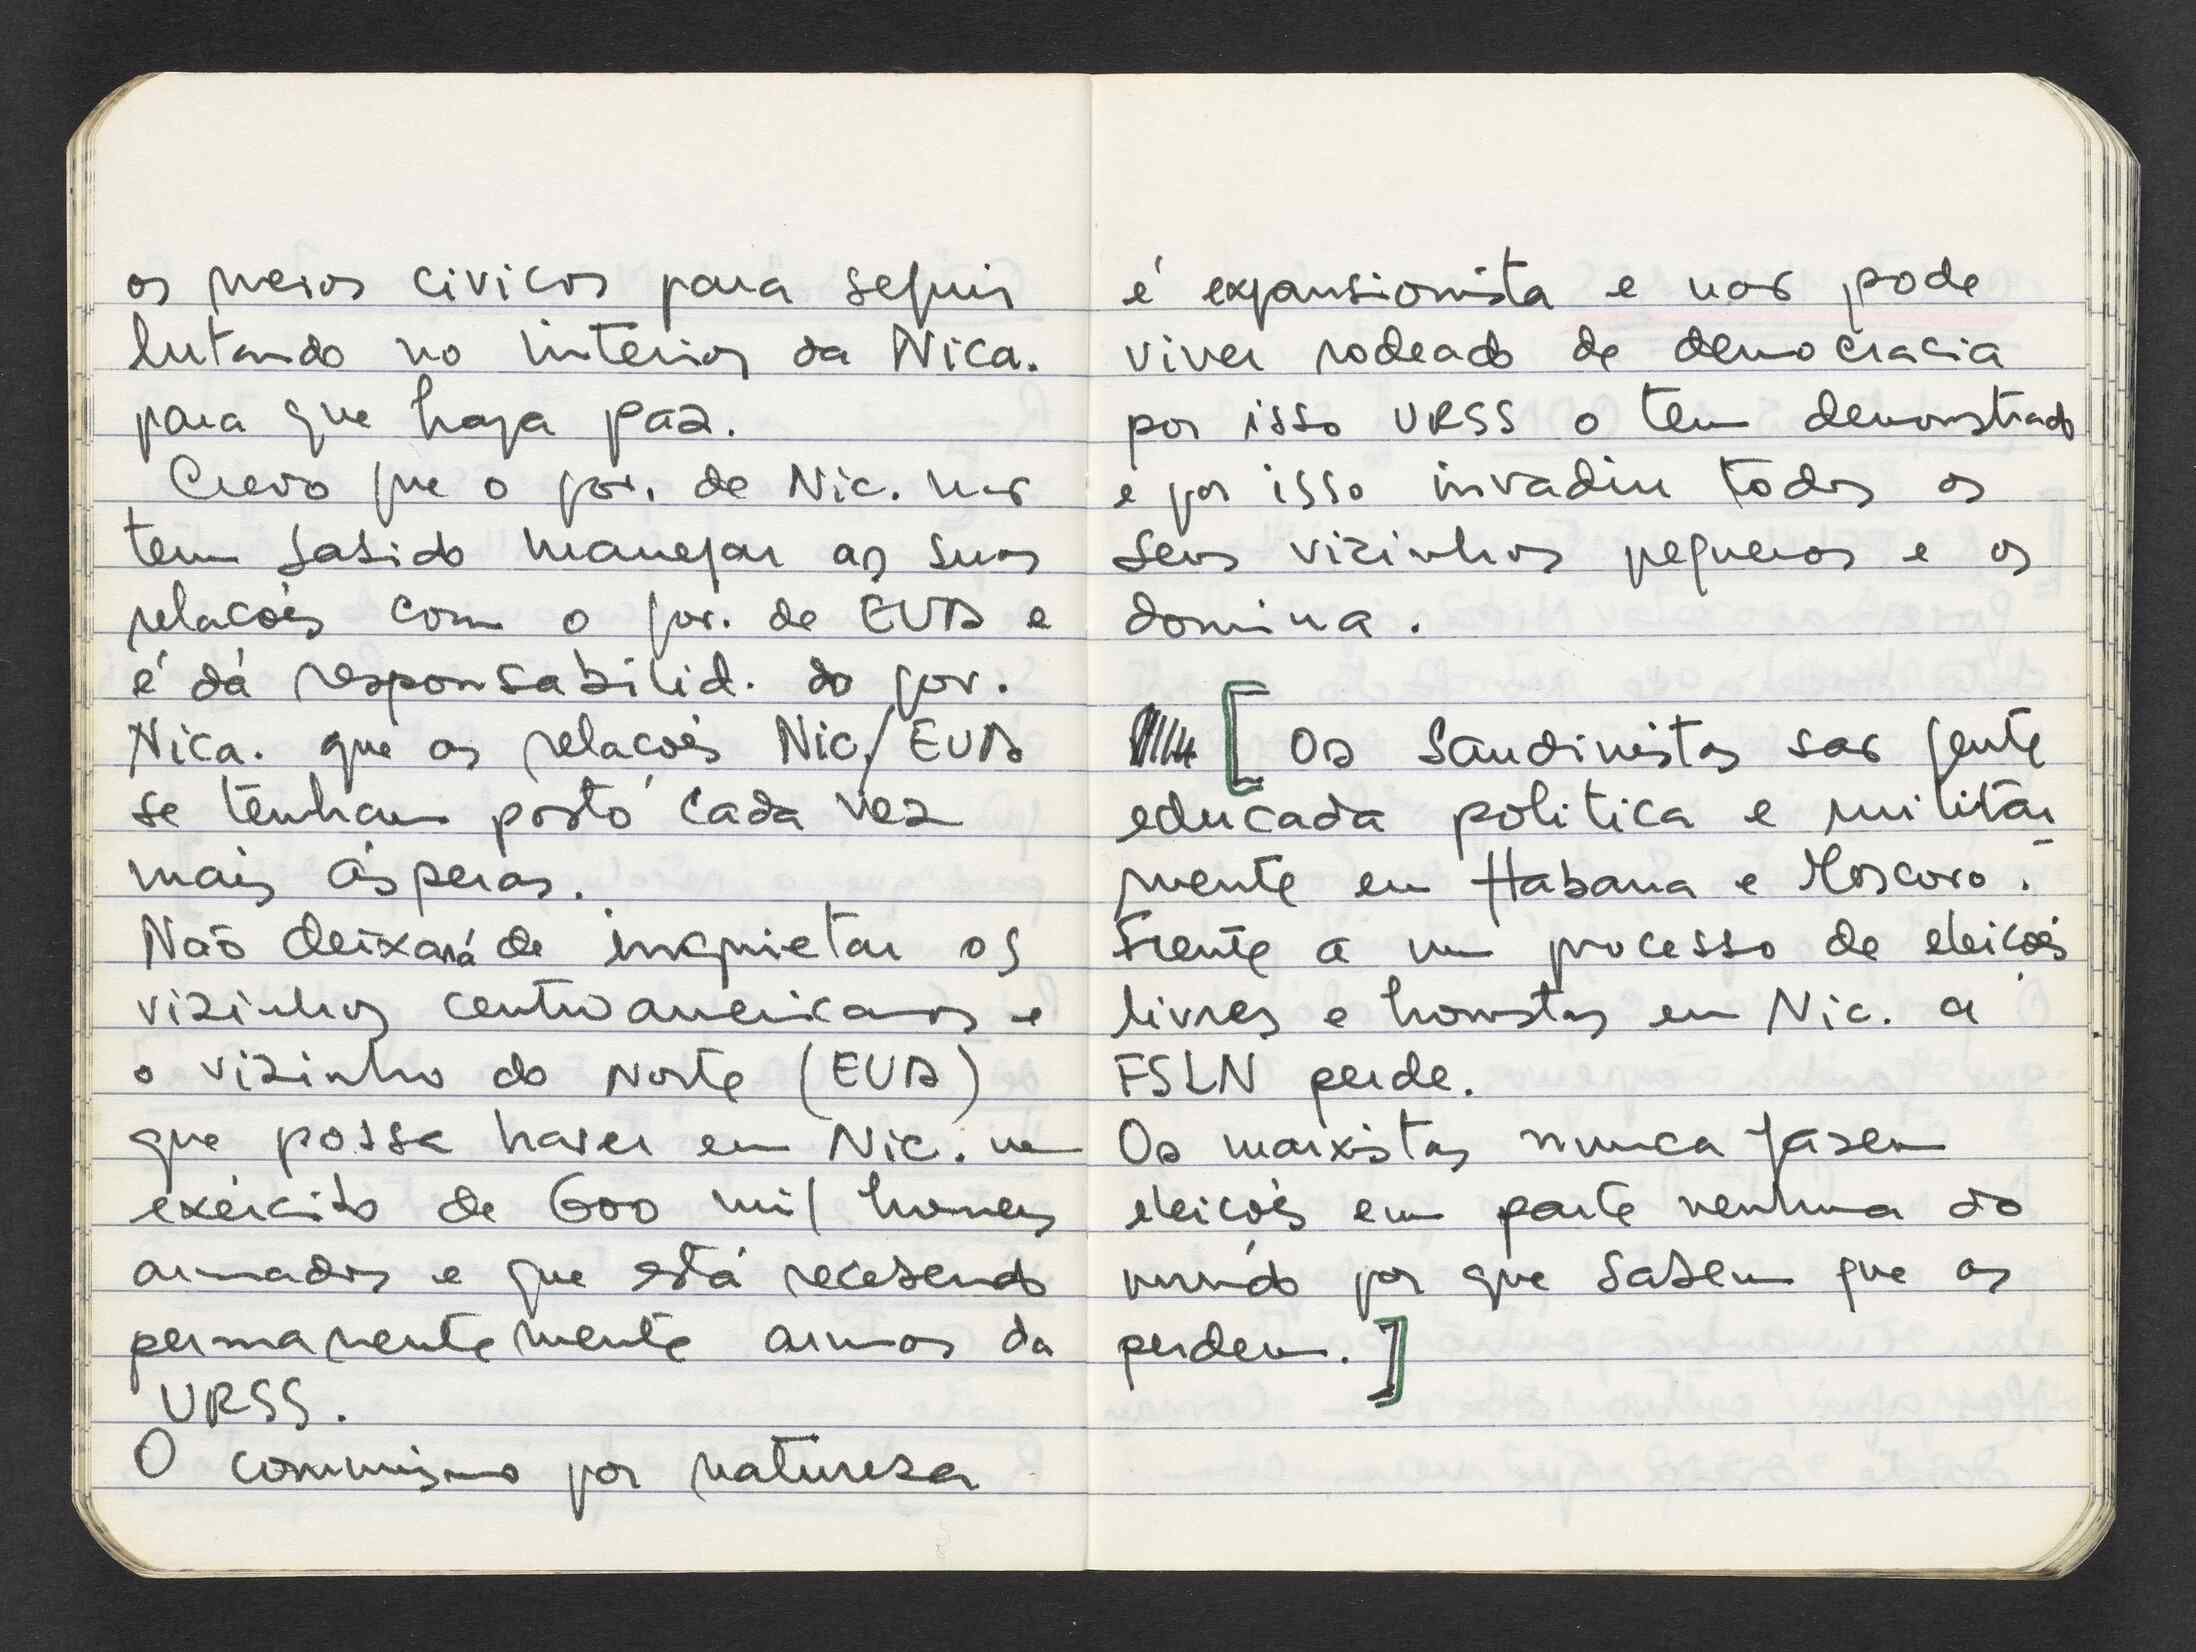 os meios civicos para seguir
lutando no interior da Nica.
para que haja paz.
Creio que o gov. de Nic. não
tem sabido manejar as suas
relacoẽs com o gov. de EUA e
é dá responsabilid. do gov.
Nica. que as relacoẽs Nic/EUA
se tenham posto cada vez
mais ásperas.
Não deixará de inquietar os
vizinhos centroamericanos e
o vizinho do Norte (EUA)
que possa haver em Nic. um
exército de 600 mil homens
armados e que está recebendo
permanentemente armas da
URSS.
O comunismo por natureza
é expansionista e não pode
viver rodeado de democracia
por isso URSS o tem demonstrado
e por isso invadiu todos os
seus vizinhos pequenos e os
domina.
[ Os Sandinistas são gente
educada politica e militar
mente em Habana e Moscovo.
Frente a um processo de eleicoẽs
livres e honestas em Nic. a
FSLN perde.
Os marxistas nunca fazem
eleicoẽs em parte nenhuma do
mundo por que sabem que as
perdem. ]